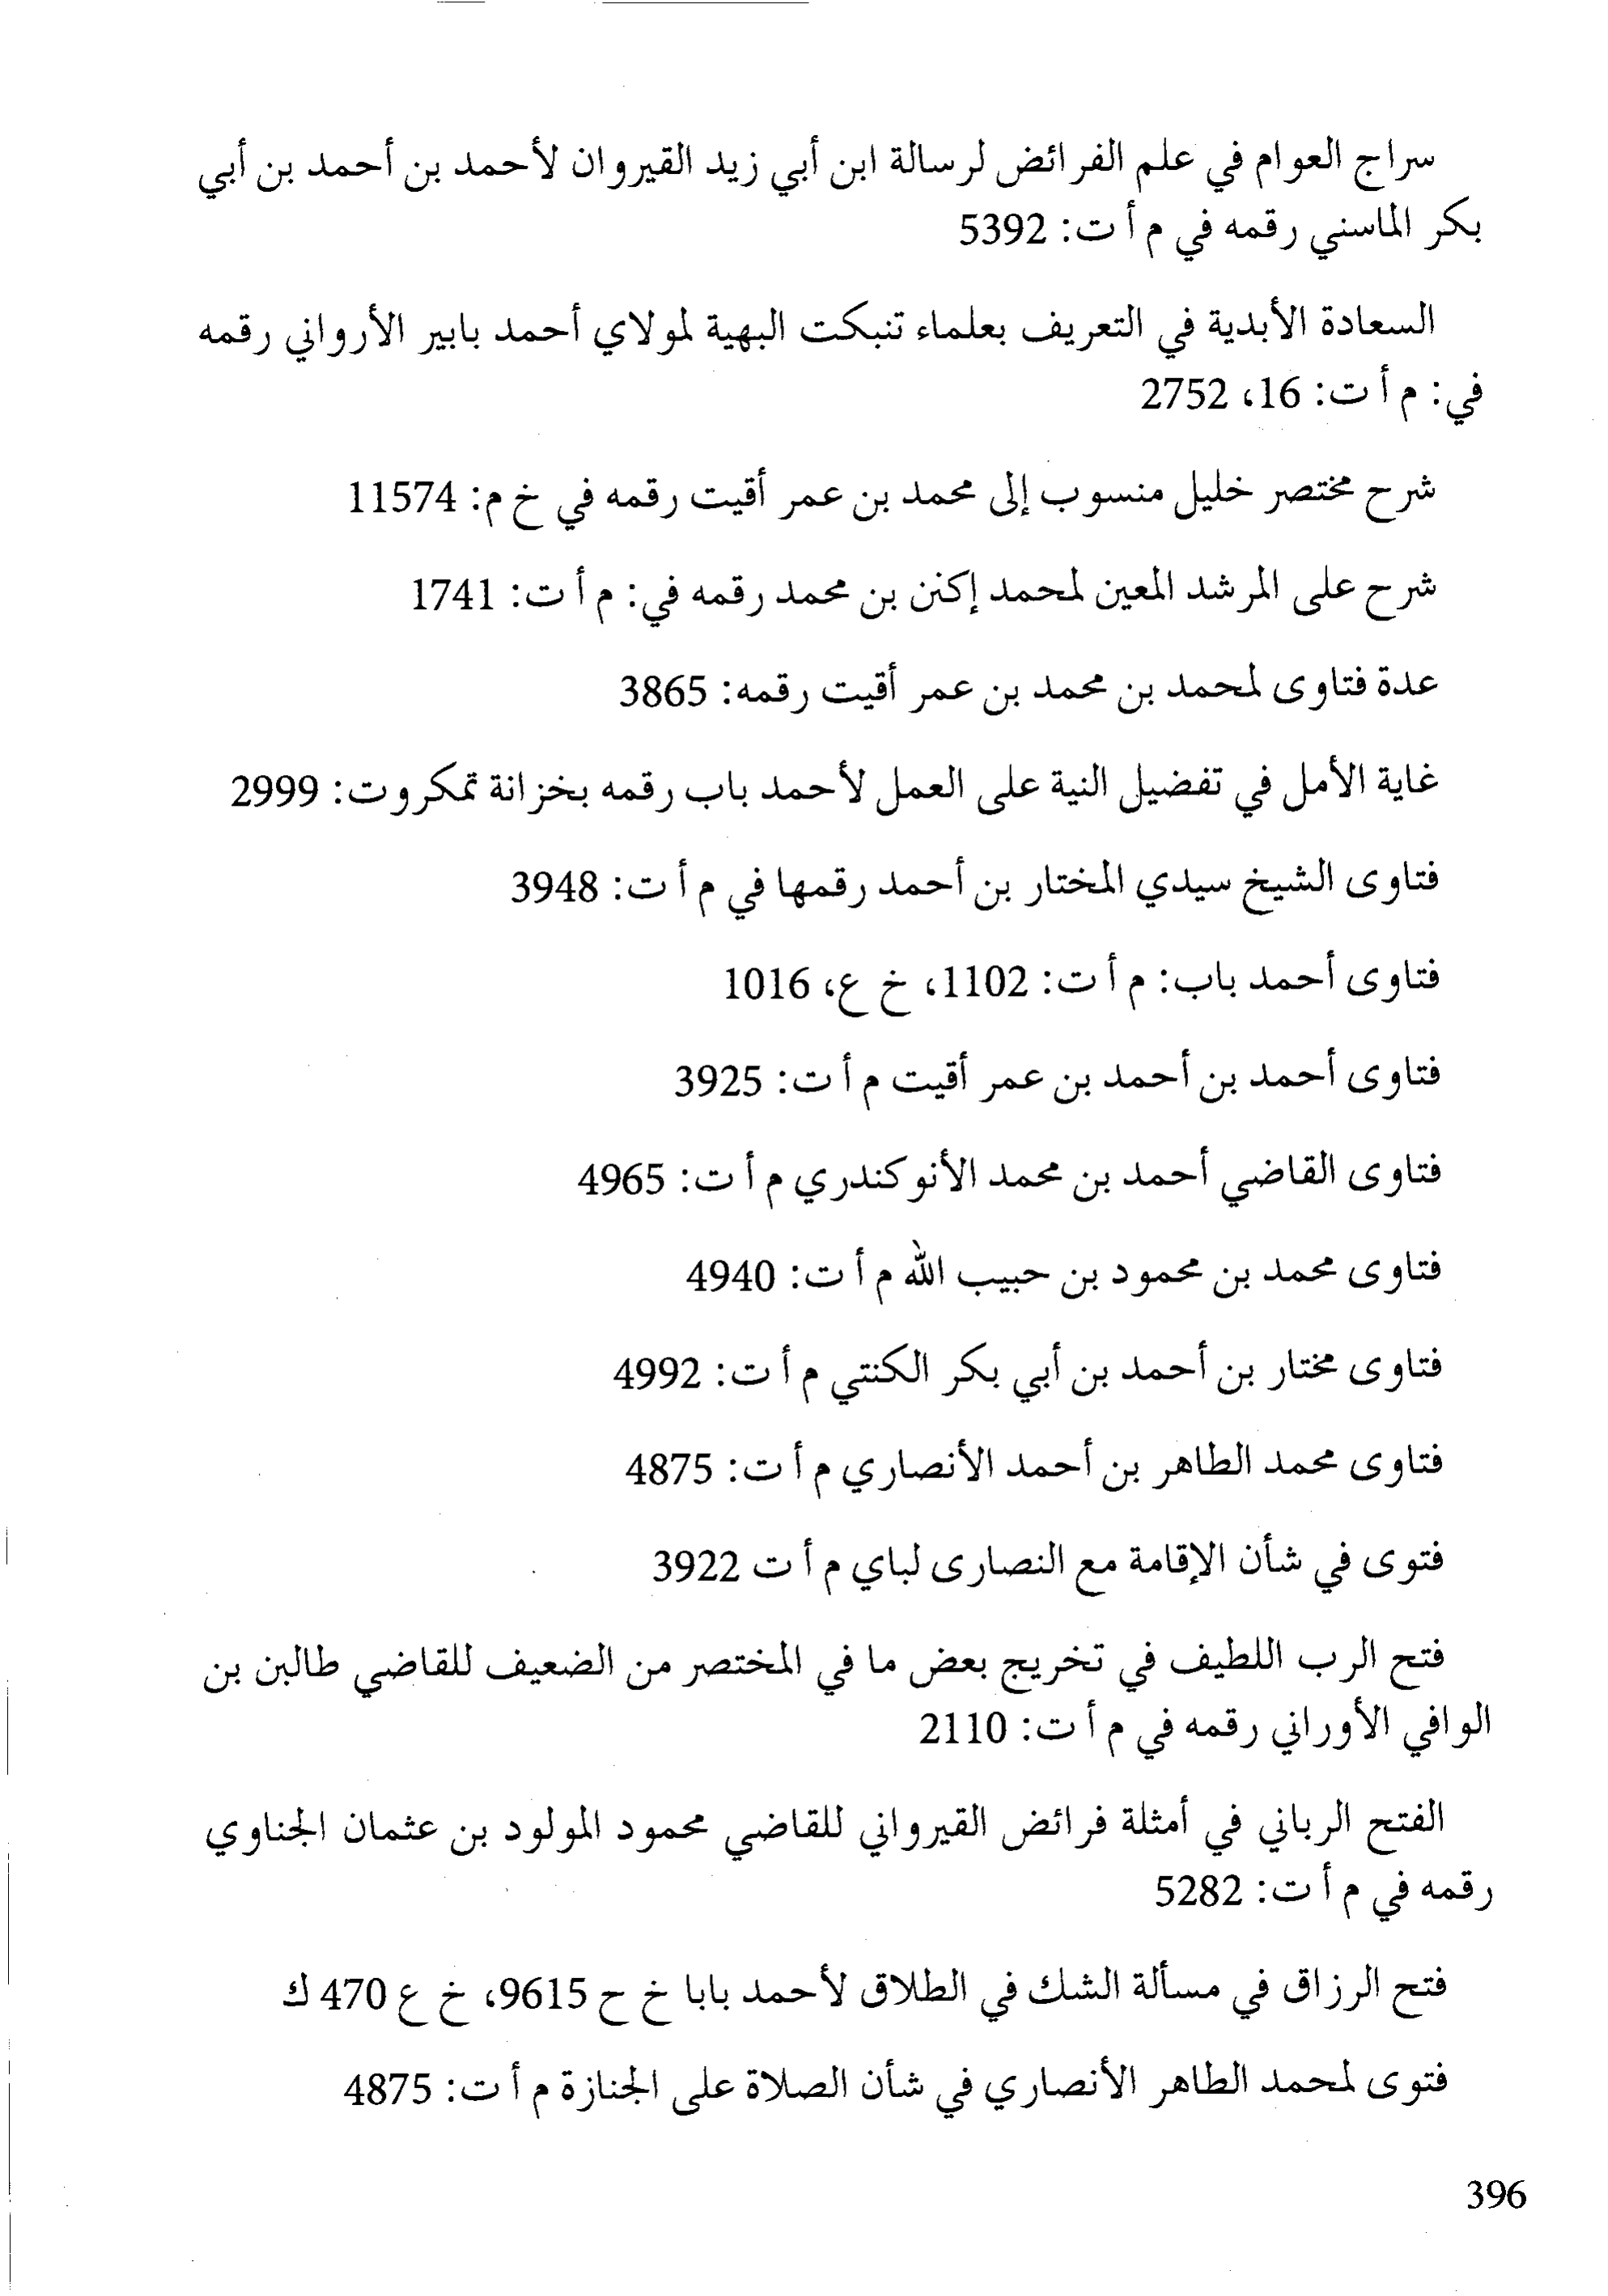 سراج العوام في علم الفرائض لرسالة ابن أبي زيد القيروان لأحمد بن أحمد بن أبي
بكر الماسني رقمه في م أ ت: 5392
السعادة الأبدية في التعريف بعلماء تنبكت البهية لمولاي أحمد بابير الأرواني رقمه
في: م أ ت: 16، 2752
شرح مختصر خليل منسوب إلى محمد بن عمر أقيت رقمه في خ م: 11574
شرح على المرشد المعين لمحمد إكنن بن محمد رقمه في: م أ ت: 1741
عدة فتاوى لمحمد بن محمد بن عمر أقيت رقمه: 3865
غاية الأمل في تفضيل النية على العمل لأحمد باب رقمه بخزانة تمكروت: 2999
فتاوى الشيخ سيدي المختار بن أحمد رقمها في م أ ت: 3948
فتاوى أحمد باب: م أ ت: 1102، خ ع، 1016
فتاوى أحمد بن أحمد بن عمر أقيت م أ ت: 3925
فتاوى القاضي أحمد بن محمد الأنوكندري م أ ت: 4965
فتاوى محمد بن محمود بن حبيب الله م أ ت: 4940
فتاوى مختار بن أحمد بن أبي بكر الكنتي م أ ت: 4992
فتاوى محمد الطاهر بن أحمد الأنصاري م أ ت: 4875
فتوى في شأن الإقامة مع النصارى لباي م أ ت 3922
فتح الرب اللطيف في تخريج بعض ما في المختصر من الضعيف للقاضي طالبن بن
الوافي الأوراني رقمه في م أ ت: 2110
الفتح الرباني في أمثلة فرائض القيرواني للقاضي محمود المولود بن عثمان الجناوي
رقمه في م أ ت: 5282
فتح الرزاق في مسألة الشك في الطلاق لأحمد بابا خ ح 9615، خ ع 470 ك
فتوى لمحمد الطاهر الأنصاري في شأن الصلاة على الجنازة م أ ت: 4875
396